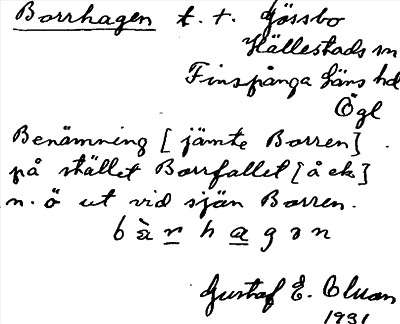 Borrhagen t. t. Gässbo
Hällestads sn
Finspånga läns hd
Ögl
Benämning [jämte Borren]
på stället Borrfallet [åck]
n. ö ut vid sjön Borren.
b à r h a g ə n
Gustaf E. Olsson
1931